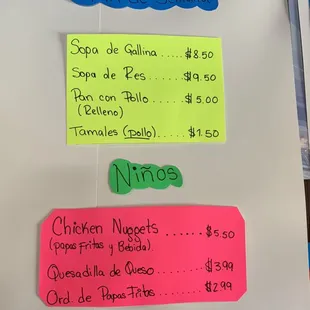 Sopa de Gallina ..... $8.50
Sopa de Res ...... $9.50
Pan con Pollo ..... $5.00
(Relleno)
Tamales (pollo) ..... $1.50
Niños
Chicken Nuggets ...... $5.50
(papas Fritas y Bebida)
Quesadilla de Queso ..... $3.99
Ord. de Papas Fritas ..... $2.99